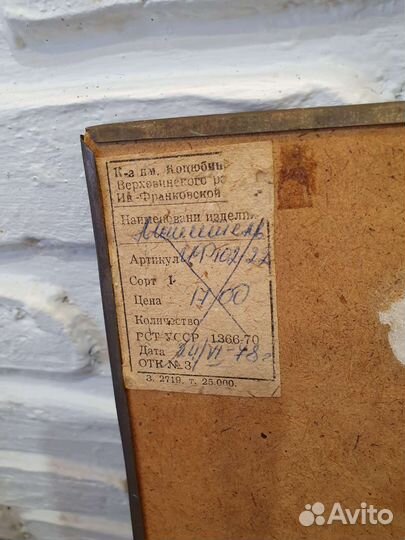 К-а им. Коцюбин
Верховинского р
Ив-Франковской
Наименовани издели
Артикул
Сорт I
Цена 17/00
Количество
РСТ УССР 1366-70
Дата 24/VI-78г
ОТК № 3
З. 2719, т. 25.000.
Avito